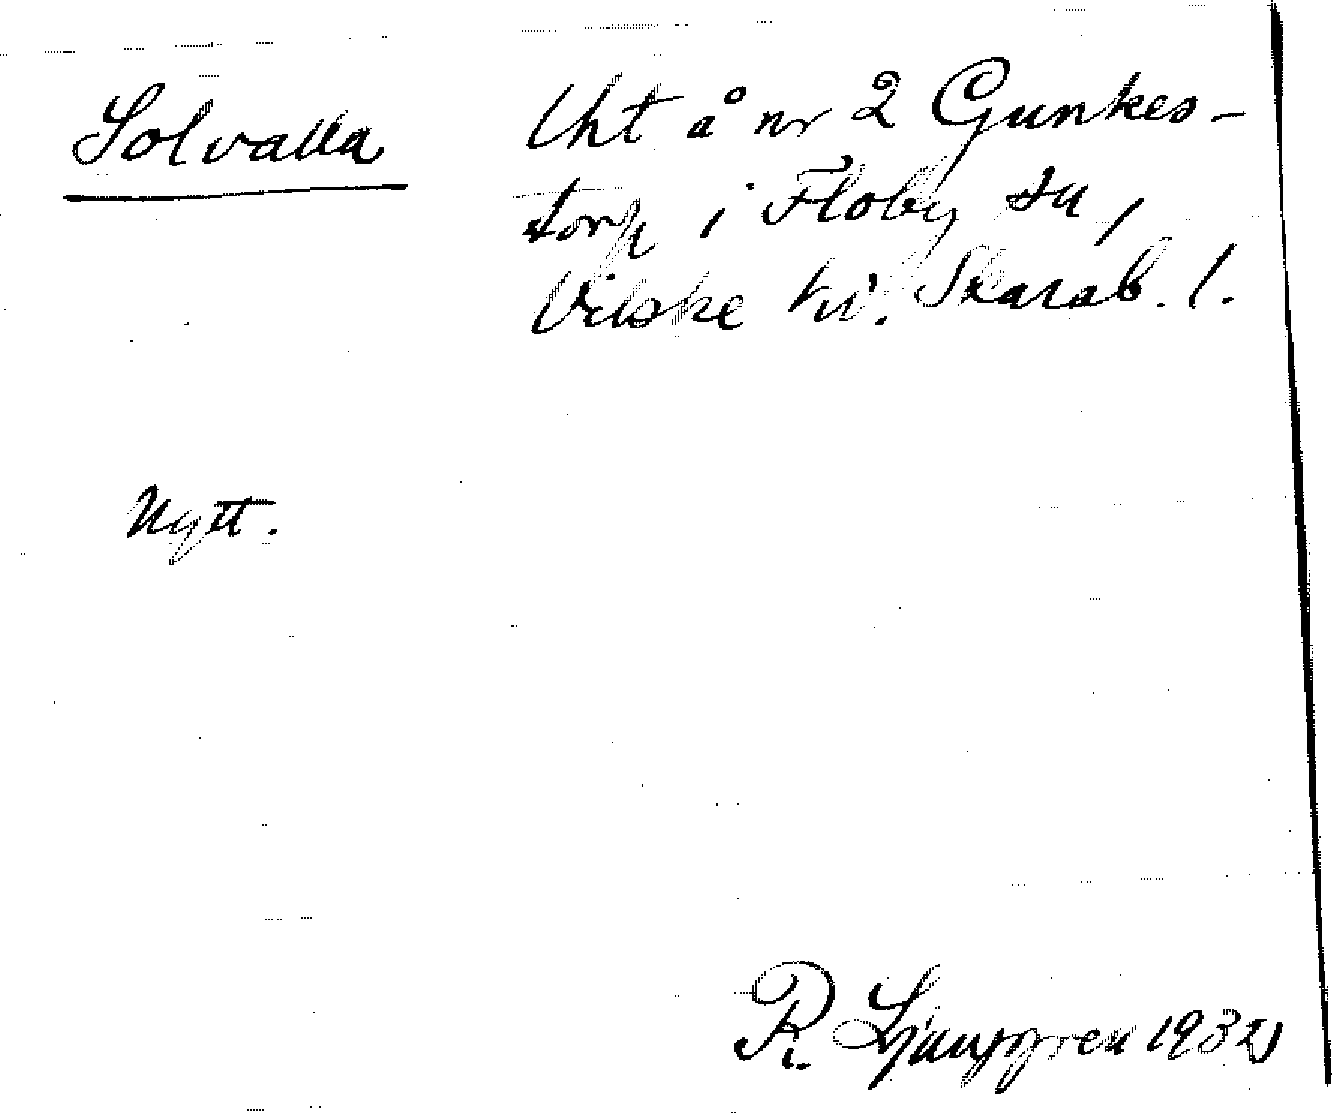 Solvalla
Lht å nr 2 Gunkes-
torp i Floby sn,
Vilske hd. Skarab. l.
Nytt.
R. Ljunggren 1932